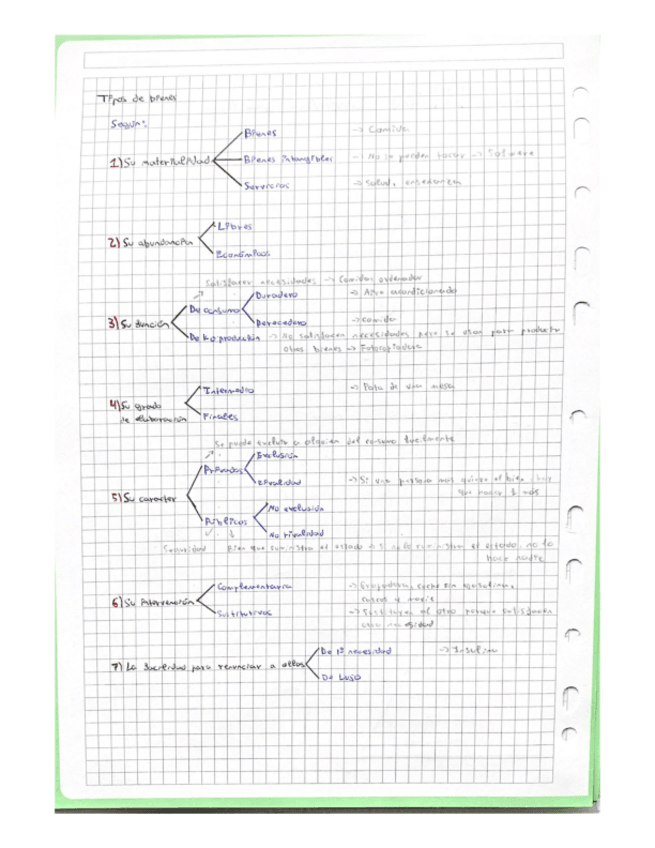 Tipos de bienes
Según:
Bienes -> Comida
1) Su materialidad
Bienes intangibles -> No se pueden tocar -> Software
Servicios -> Salud, enseñanza
Libres
2) Su abundancia
Económicos
Satisfacer necesidades -> Comida, ordenador
Duradero -> Aire acondicionado
De consumo
3) Su función
Perecedero -> comida
De la producción -> No satisfacen necesidades pero se usan para producir
otros bienes -> Fotocopiadora
Intermedio -> Pata de una mesa
4) Su grado
de elaboración
Finales
Se puede excluir a alguien del consumo fácilmente
Exclusión
Privados
Rivalidad -> Si una persona más quiere el bien, hay
que hacer 1 más
5) Su caracter
No exclusión
Públicos
No rivalidad
Seguridad Bien que suministra el estado -> Si no lo suministra el estado, no lo
hace nadie
Complementaria -> coche sin gasolina,
6) Su intervención
Sustitutivos -> Sustituyen al otro porque satisfacen
necesidad
De 1ª necesidad -> Insulina
7) La facilidad para renunciar a ellos
De Lujo